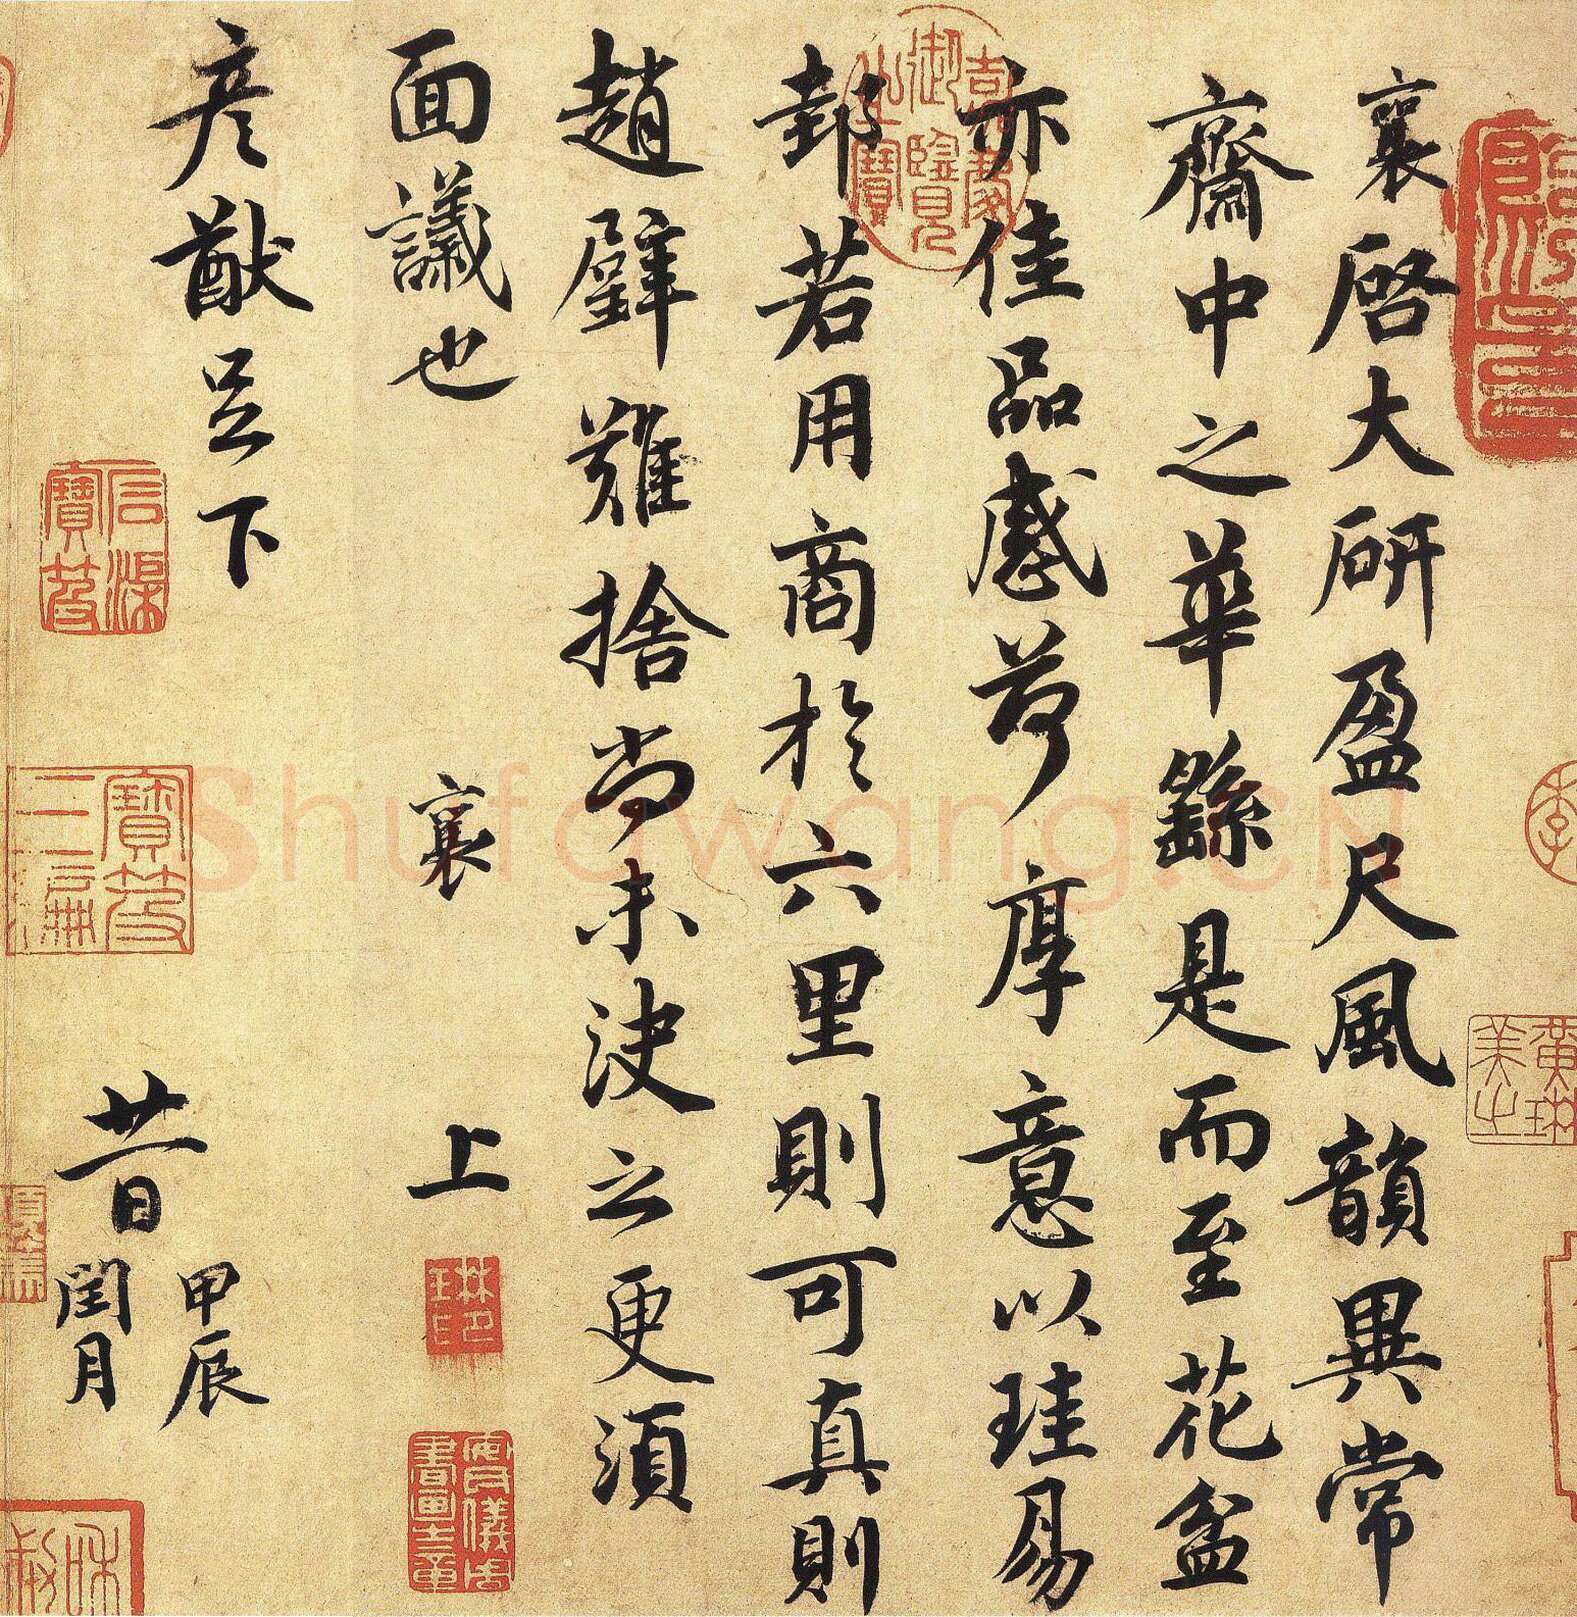 襄啓大研盈尺風韻異常
齋中之華繇是而至花盆
亦佳品感荷厚意以珪易
邽若用商於六里則可真則
趙璧難捨尚未决之更須
面議也
襄上
彥猷足下
廿一日
甲辰
閏月
嘉慶御覽之寶
Shufawang.cN